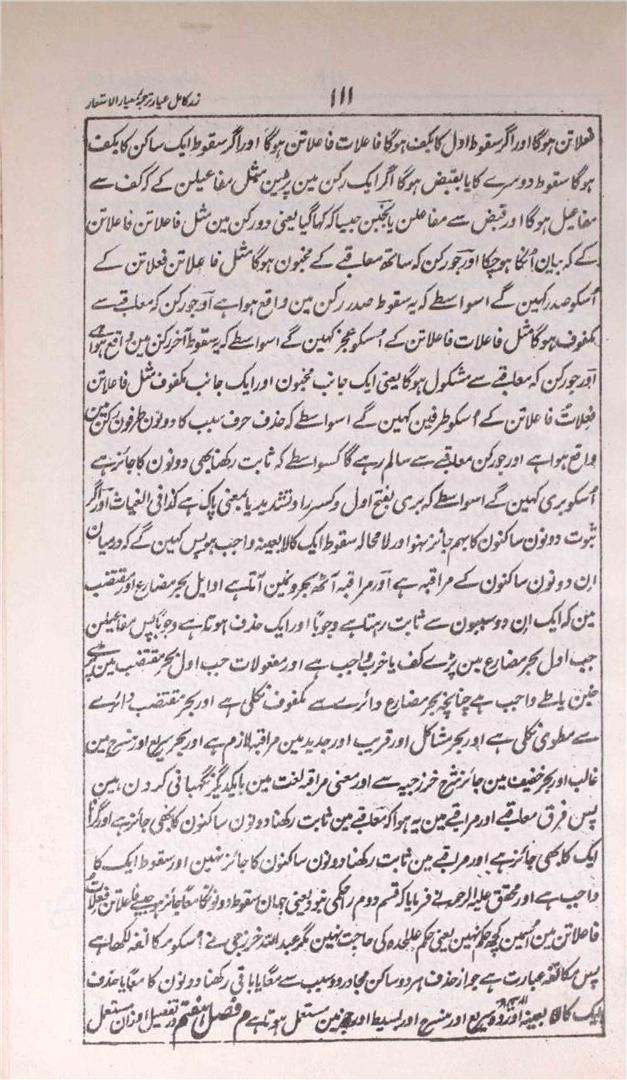 ۱۱۱
زر کامل عیار ترجمۂ معیار الاشعار
فعلاتن ہوگا اور اگر سقوط اول کا بکف ہوگا فاعلات فاعلاتن ہوگا اور اگر سقوط ایک ساکن کا بکف
ہوگا سقوط دوسرے کا یا بقبض ہوگا اگر ایک رکن مین پڑین مثل مفاعیلن کے کہ کف سے
مفاعیل ہوگا اور قبض سے مفاعلن یا بخبن جیسا کہ کہا گیا یعنی دو رکن مین مثل فاعلاتن فاعلاتن
کے کہ بیان اُنکا ہو چکا اور جو رکن کہ ساتھ معاقبے کے مخبون ہوگا مثل فاعلاتن فعلاتن کے
اُسکو صدر کہین گے اسواسطے کہ یہ سقوط صدر رکن مین واقع ہوا ہے اور جو رکن کہ معاقبے سے
مکفوف ہوگا مثل فاعلات فاعلاتن کے اُسکو عجز کہین گے اسواسطے کہ یہ سقوط آخر رکن مین واقع ہوا ہے
اور جو رکن کہ معاقبے سے مشکول ہوگا یعنی ایک جانب مخبون اور ایک جانب مکفوف مثل فاعلاتن
فعلاتُ فاعلاتن کے اُسکو طرفین کہین گے اسواسطے کہ حذف حرف سبب کا دونون طرفون رکن مین
واقع ہوا ہے اور جو رکن معاقبے سے سالم رہے گا کسواسطے کہ ثابت رکھنا بھی دونون کا جائز ہے
اُسکو بری کہین گے اسواسطے کہ بری بفتح اول و کسر را و تشدید یا بمعنی پاک ہے کذا فی الغیاث اور اگر
ثبوت دونون ساکنون کا بہم جائز نہو اور لا محالہ سقوط ایک کا لا بعینہ واجب ہو پس کہین گے کہ درمیان
ان دونون ساکنون کے مراقبہ ہے اور مراقبہ آٹھ بحرونمین آتا ہے اوایل بحر مضارع اور مقتضب
مین کہ ایک ان دو سببون سے ثابت رہتا ہے وجوبًا اور ایک حذف ہوتا ہے وجوبًا پس مفاعیلن
جب اول بحر مضارع مین پڑے کف یا خرب واجب ہے اور مفعولات جب اول بحر مقتضب مین پڑے
خبن یا طے واجب ہے چنانچہ بحر مضارع دائرے سے مکفوف نکلی ہے اور بحر مقتضب دائرے
سے مطوی نکلی ہے اور بحر مشاکل اور قریب اور جدید مین مراقبہ لازم ہے اور بحر سریع اور منسرح مین
غالب اور بحر خفیف مین جائز شرح خزرجیہ سے اور معنی مراقبہ لغت مین بایکدیگر نگہبانی کردن ہین
پس فرق معاقبے اور مراقبے مین یہ ہوا کہ معاقبے مین ثابت رکھنا دونون ساکنون کا بھی جائز ہے اور گرانا
ایک کا بھی جائز ہے اور مراقبے مین ثابت رکھنا دونون ساکنون کا جائز نہین اور سقوط ایک کا
واجب ہے اور محقق علیہ الرحمہ نے فرمایا کہ قسم دوم را حکمی نبود یعنی جہان سقوط دونونکا معًا جائز ہے جیسے فاعلاتن فعلات
فاعلاتن مین اُسمین کچھ حکم نہین یعنی حکم علٰحدہ کی حاجت نہین مگر عبد اللہ خزرجی نے اُسکو مکانفہ لکھا ہے
پس مکانفہ عبارت ہے جواز حذف ہر دو ساکن مجاور دو سبب سے معًا یا باقی رکھنا دونون کا معًا یا حذف
ایک کا لا بعینہ اور سریع اور منسرح اور بسیط اور رجز مین مستعمل ہوتا ہے م فصل ہفتم در تفصیل اوزان مستعمل